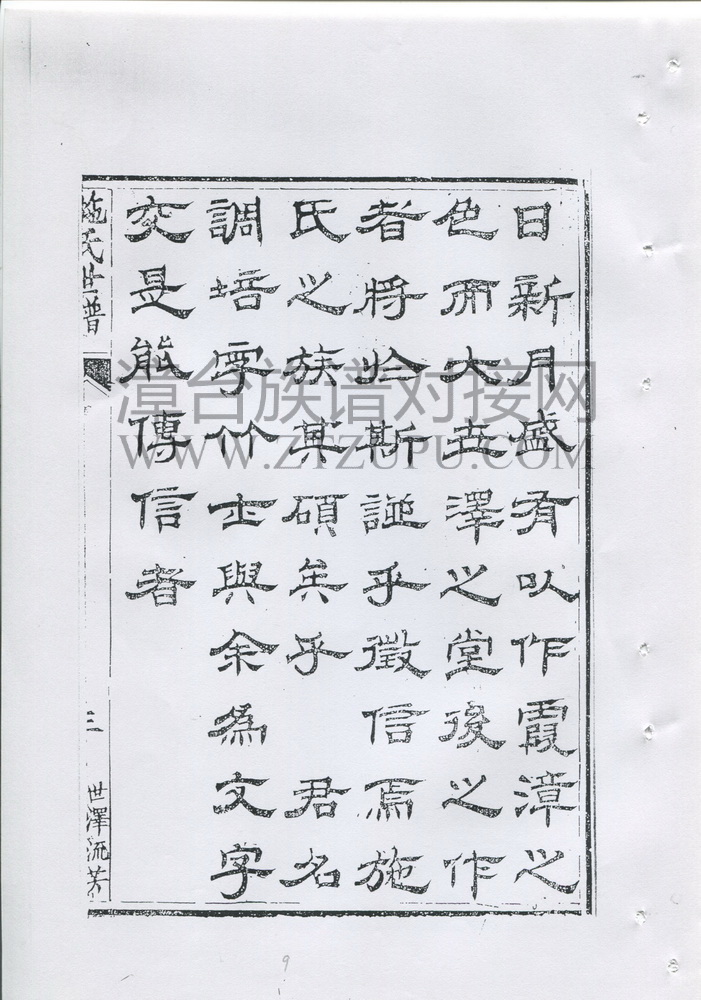 日新月盛有以作霞漳之
色而大世澤之堂後之作
者將於斯諩乎徵信焉施
氏之族其碩矣乎 君名
調培字竹士與余為文字
交是能傳信者
施氏世譜
三
世澤流芳
漳台族谱对接网
WWW.ZTZUPU.COM
9